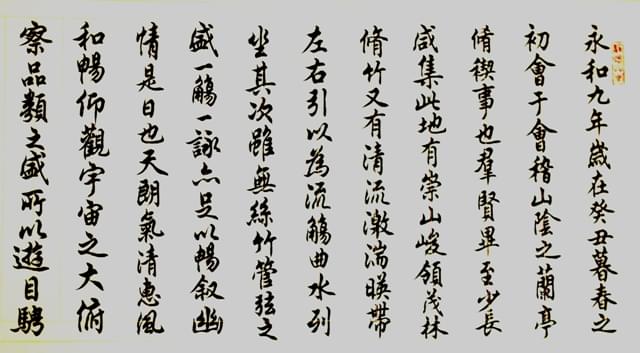 永和九年歲在癸丑暮春之
初會于會稽山陰之蘭亭
脩稧事也羣賢畢至少長
咸集此地有崇山峻領茂林
脩竹又有清流激湍暎帶
左右引以為流觴曲水列
坐其次雖無絲竹管弦之
盛一觴一詠亦足以暢敘幽
情是日也天朗氣清惠風
和暢仰觀宇宙之大俯
察品類之盛所以遊目騁